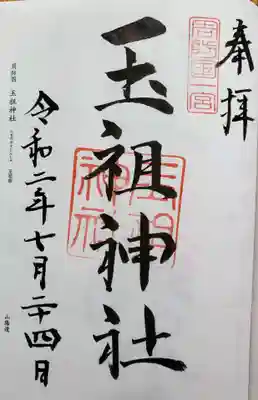 奉拝
周防国一宮
玉祖神社
玉祖神社
周防国 玉祖神社
令和二年七月二十四日
山陽道